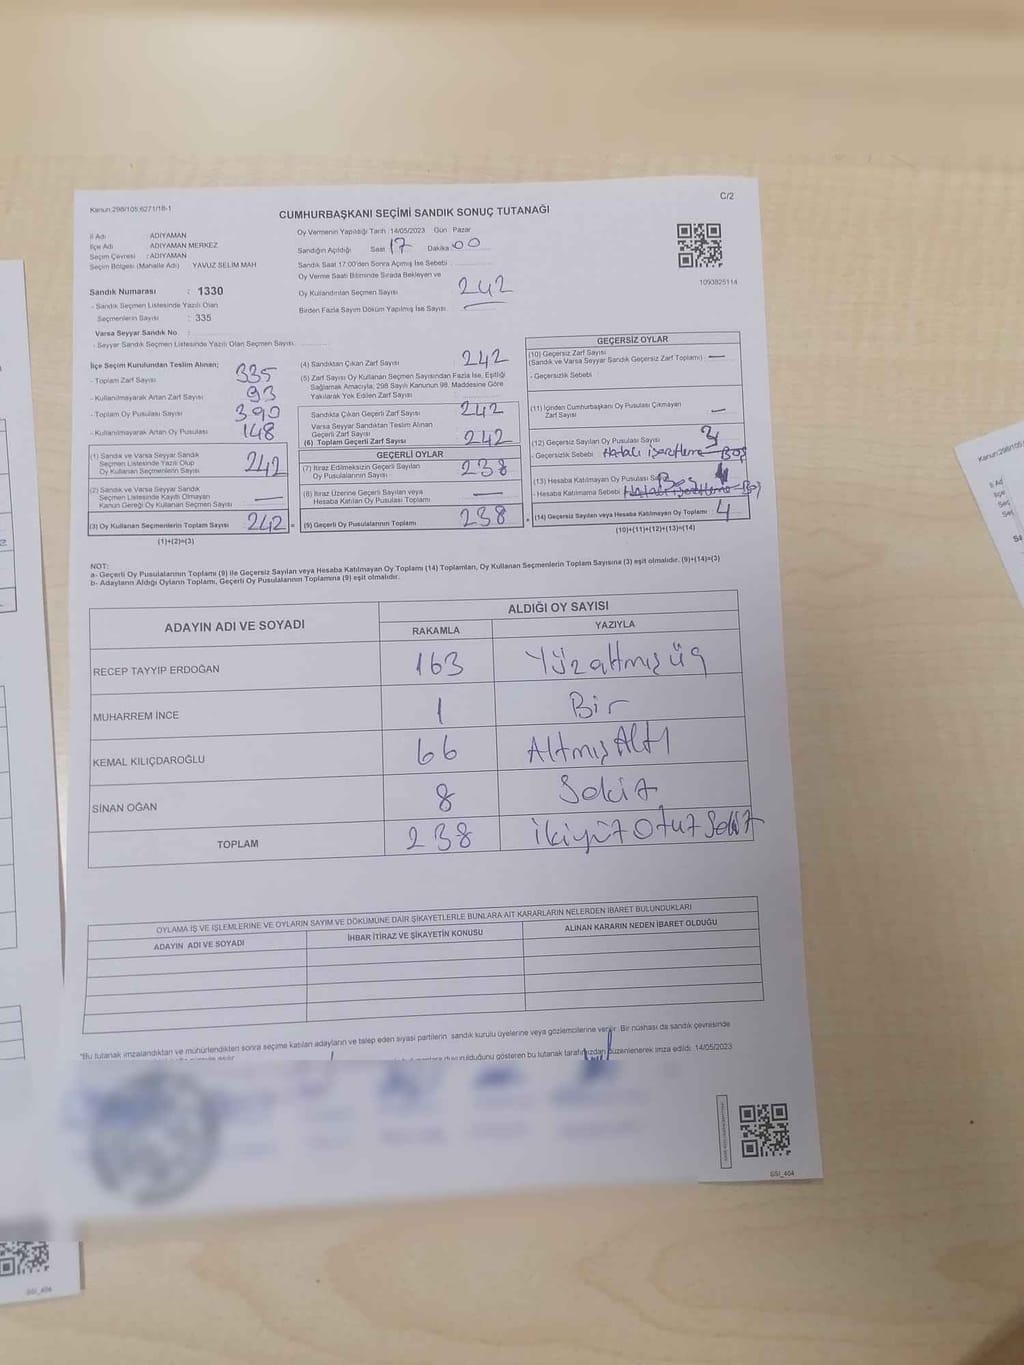 C/2
Kanun:298/105;6271/18-1
CUMHURBAŞKANI SEÇİMİ SANDIK SONUÇ TUTANAĞI
İl Adı : ADIYAMAN
İlçe Adı : ADIYAMAN MERKEZ
Seçim Çevresi : ADIYAMAN
Seçim Bölgesi (Mahalle Adı) YAVUZ SELİM MAH
Sandık Numarası : 1330
- Sandık Seçmen Listesinde Yazılı Olan
Seçmenlerin Sayısı : 335
Varsa Seyyar Sandık No :
- Seyyar Sandık Seçmen Listesinde Yazılı Olan Seçmen Sayısı
Oy Vermenin Yapıldığı Tarih :14/05/2023 Gün : Pazar
Sandığın Açıldığı Saat 17 Dakika 00
Sandık Saat 17:00'den Sonra Açılmış İse Sebebi
Oy Verme Saati Bitiminde Sırada Bekleyen ve
Oy Kullandırılan Seçmen Sayısı 242
Birden Fazla Sayım Döküm Yapılmış İse Sayısı
1093825114
İlçe Seçim Kurulundan Teslim Alınan;
- Toplam Zarf Sayısı 335
- Kullanılmayarak Artan Zarf Sayısı 93
- Toplam Oy Pusulası Sayısı 390
- Kullanılmayarak Artan Oy Pusulası 148
(1) Sandık ve Varsa Seyyar Sandık
Seçmen Listesinde Yazılı Olup
Oy Kullanan Seçmenlerin Sayısı 242
(2) Sandık ve Varsa Seyyar Sandık
Seçmen Listesinde Kayıtlı Olmayan
Kanun Gereği Oy Kullanan Seçmen Sayısı —
(3) Oy Kullanan Seçmenlerin Toplam Sayısı 242 =
(1)+(2)=(3)
(4) Sandıktan Çıkan Zarf Sayısı : 242
(5) Zarf Sayısı Oy Kullanan Seçmen Sayısından Fazla İse, Eşitliği
Sağlamak Amacıyla, 298 Sayılı Kanunun 98. Maddesine Göre
Yakılarak Yok Edilen Zarf Sayısı
Sandıkta Çıkan Geçerli Zarf Sayısı 242
Varsa Seyyar Sandıktan Teslim Alınan
Geçerli Zarf Sayısı
(6) Toplam Geçerli Zarf Sayısı 242
GEÇERLİ OYLAR
(7) İtiraz Edilmeksizin Geçerli Sayılan
Oy Pusulalarının Sayısı 238
(8) İtiraz Üzerine Geçerli Sayılan veya
Hesaba Katılan Oy Pusulası Toplamı —
(9) Geçerli Oy Pusulalarının Toplamı 238 +
GEÇERSİZ OYLAR
(10) Geçersiz Zarf Sayısı
(Sandık ve Varsa Seyyar Sandık Geçersiz Zarf Toplamı) —
- Geçersizlik Sebebi
(11) İçinden Cumhurbaşkanı Oy Pusulası Çıkmayan
Zarf Sayısı —
(12) Geçersiz Sayılan Oy Pusulası Sayısı
- Geçersizlik Sebebi Hatalı işaretleme - Boş
(13) Hesaba Katılmayan Oy Pusulası
- Hesaba Katılmama Sebebi
(14) Geçersiz Sayılan veya Hesaba Katılmayan Oy Toplamı : 4
(10)+(11)+(12)+(13)=(14)
NOT:
a- Geçerli Oy Pusulalarının Toplamı (9) ile Geçersiz Sayılan veya Hesaba Katılmayan Oy Toplamı (14) Toplamları, Oy Kullanan Seçmenlerin Toplam Sayısına (3) eşit olmalıdır. (9)+(14)=(3)
b- Adayların Aldığı Oyların Toplamı, Geçerli Oy Pusulalarının Toplamına (9) eşit olmalıdır.
ADAYIN ADI VE SOYADI ALDIĞI OY SAYISI
RAKAMLA YAZIYLA
RECEP TAYYIP ERDOĞAN 163 Yüzaltmışüç
MUHARREM İNCE 1 Bir
KEMAL KILIÇDAROĞLU 66 AltmışAltı
SİNAN OĞAN 8 Sekiz
TOPLAM 238 ikiyüz Otuz Sekiz
OYLAMA İŞ VE İŞLEMLERİNE VE OYLARIN SAYIM VE DÖKÜMÜNE DAİR ŞİKAYETLERLE BUNLARA AİT KARARLARIN NELERDEN İBARET BULUNDUKLARI
ADAYIN ADI VE SOYADI İHBAR İTİRAZ VE ŞİKAYETİN KONUSU ALINAN KARARIN NEDEN İBARET OLDUĞU
"Bu tutanak imzalandıktan ve mühürlendikten sonra seçime katılan adayların ve talep eden siyasi partilerin sandık kurulu üyelerine veya gözlemcilerine verilir. Bir nüshası da sandık çevresinde
duyurulduğunu gösteren bu tutanak tarafımızdan düzenlenerek imza edildi. 14/05/2023
SSİ_404
SSİ_404
Kanun:298/105